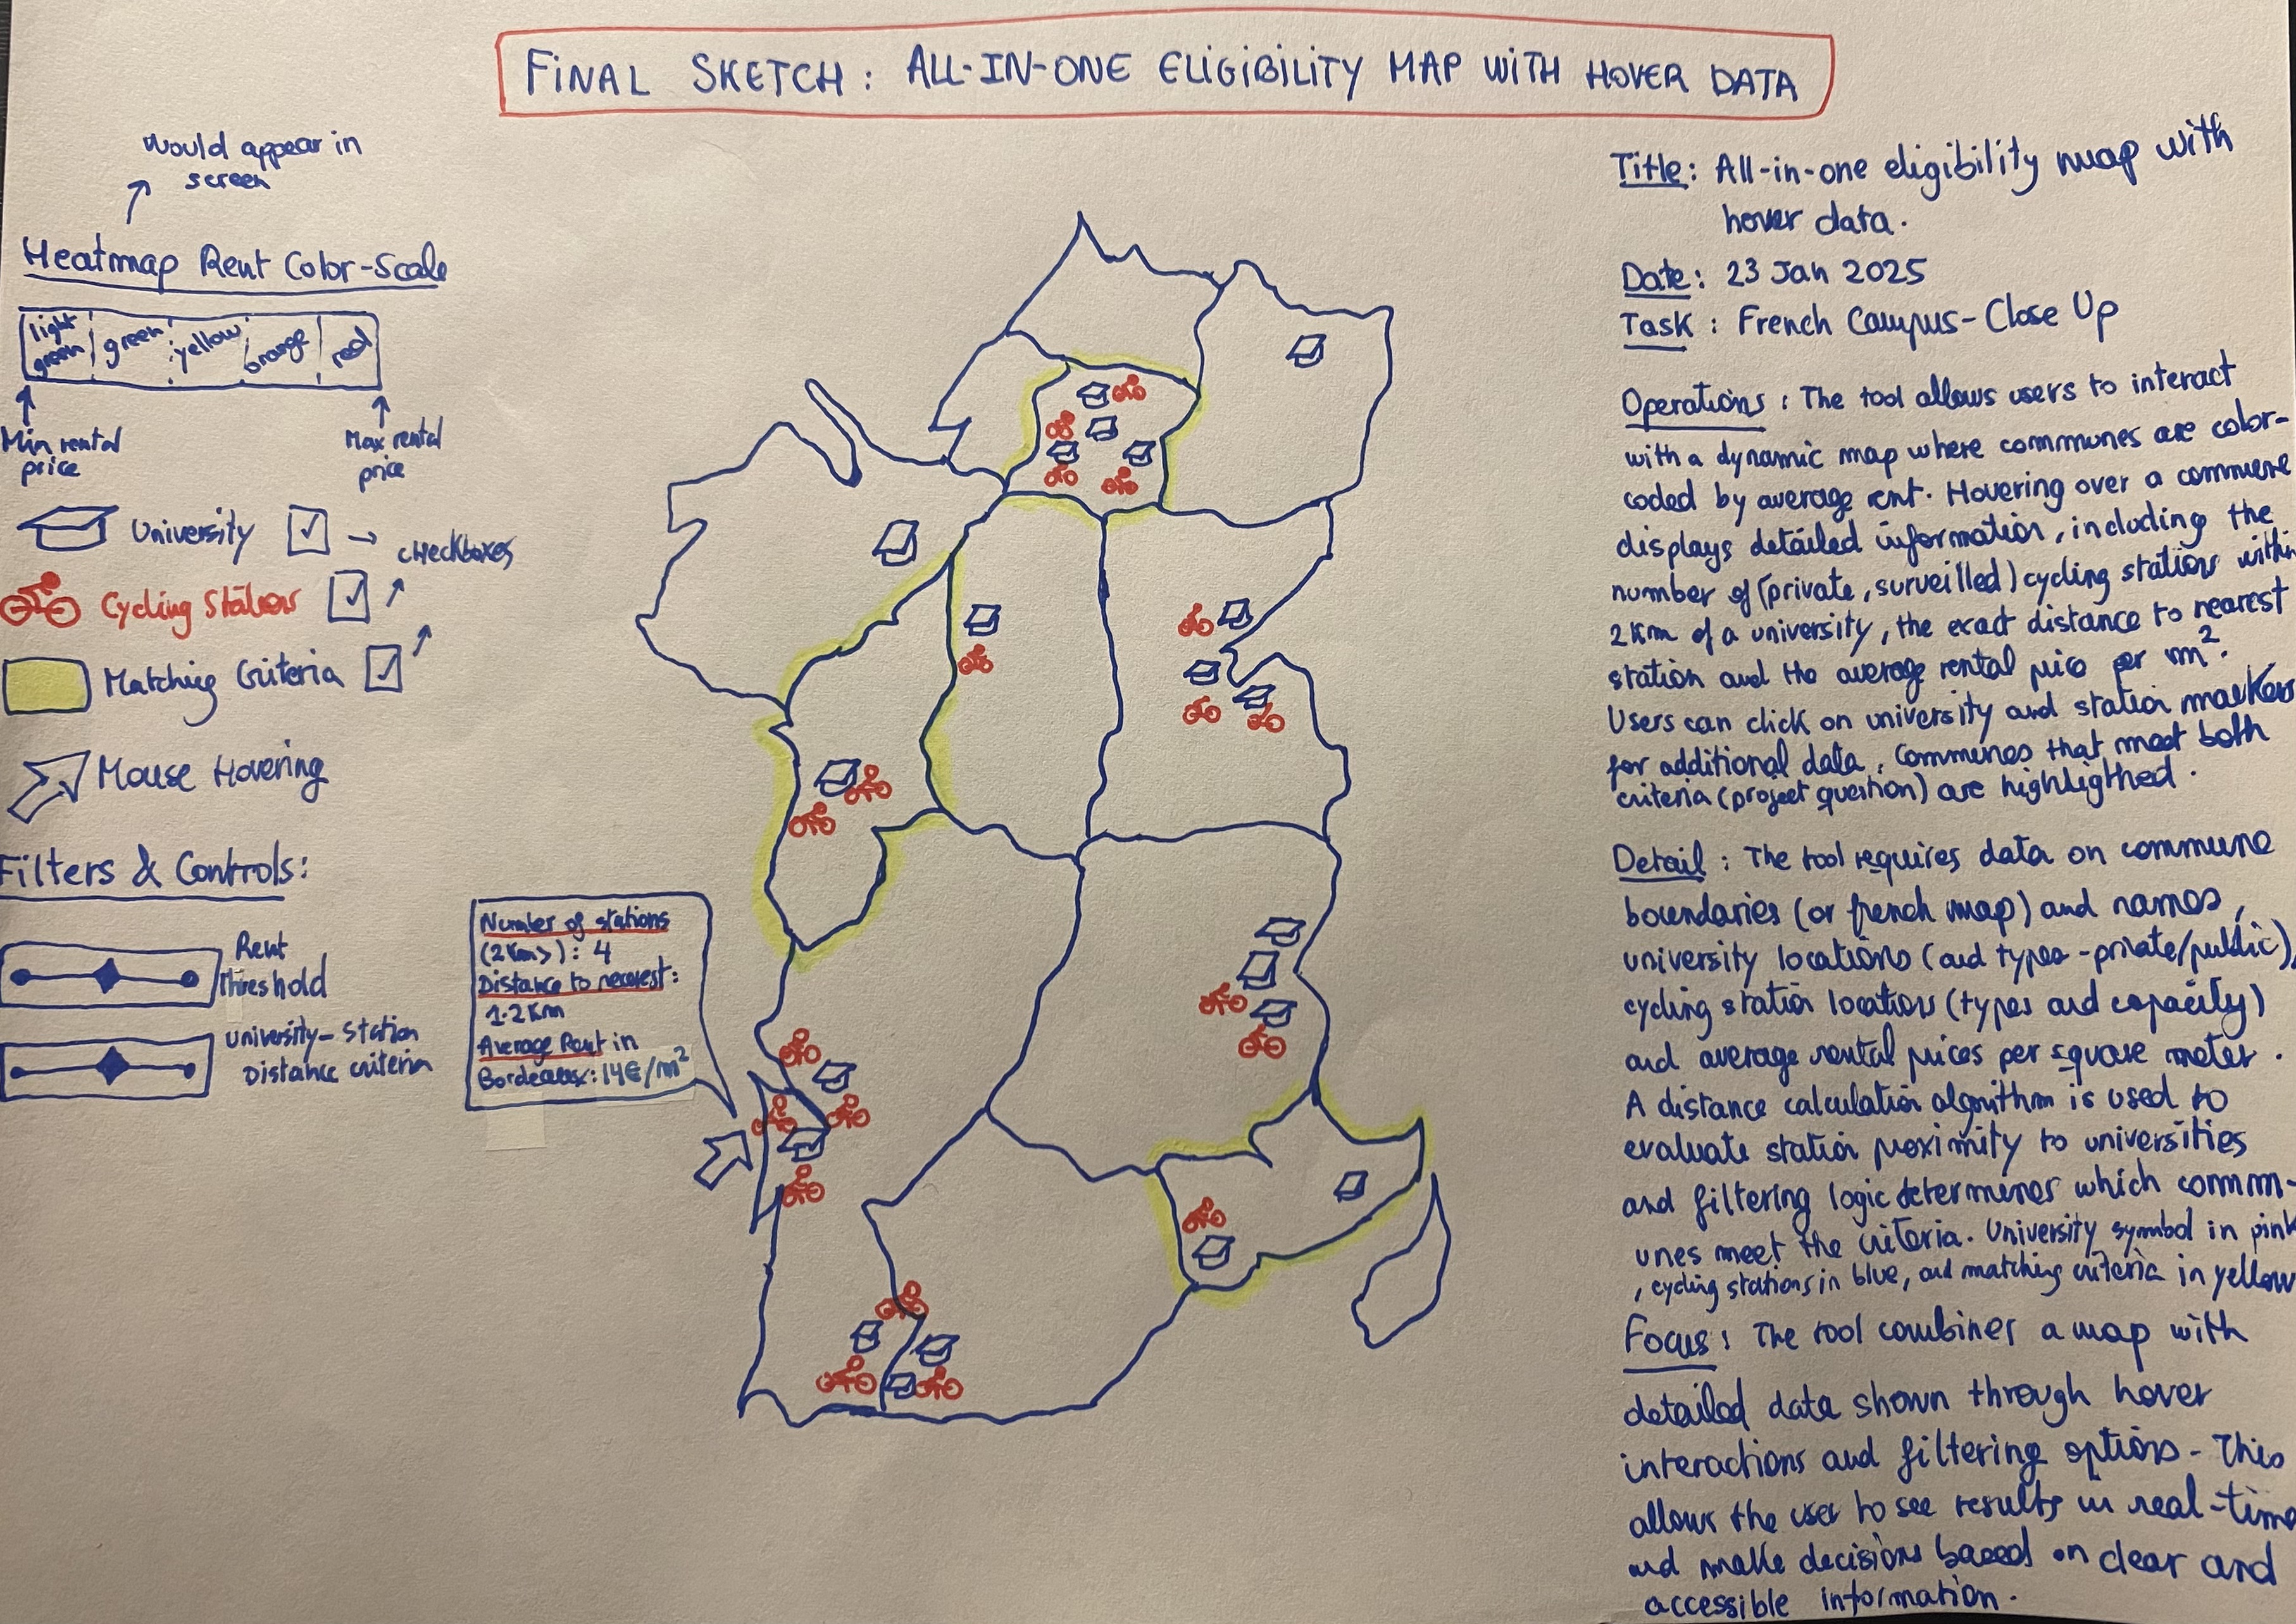 FINAL SKETCH: ALL-IN-ONE ELIGIBILITY MAP WITH HOVER DATA
Would appear in
screen
Heatmap Rent Color-Scale
light green
green
yellow
orange
red
Min rental
price
Max rental
price
University
checkboxes
Cycling Station
Matching Criteria
Mouse Hovering
Filters & Controls:
Rent
Threshold
University-Station
Distance criteria
Number of stations
(2Km>): 4
Distance to nearest:
1.2Km
Average Rent in
Bordeaux: 14€/m²
Title: All-in-one eligibility map with
hover data.
Date: 23 Jan 2025
Task: French Campus-Close Up
Operations: The tool allows users to interact
with a dynamic map where communes are color-
coded by average rent. Hovering over a commune
displays detailed information, including the
number of (private, surveilled) cycling station within
2Km of a university, the exact distance to nearest
station and the average rental price per m².
Users can click on university and station markers
for additional data. Communes that meet both
criteria (project question) are highligthed.
Detail: The tool requires data on commune
boundaries (or french map) and names,
university locations (and types-private/public),
cycling station location (types and capacity)
and average rental prices per square meter.
A distance calculation algorithm is used to
evaluate station proximity to universities
and filtering logic determines which comm-
unes meet the criteria. University symbol in pink
, cycling stations in blue, and matching criteria in yellow
Focus: The tool combines a map with
detailed data shown through hover
interactions and filtering options - This
allows the user to see results in real-time
and make decisions based on clear and
accessible information.